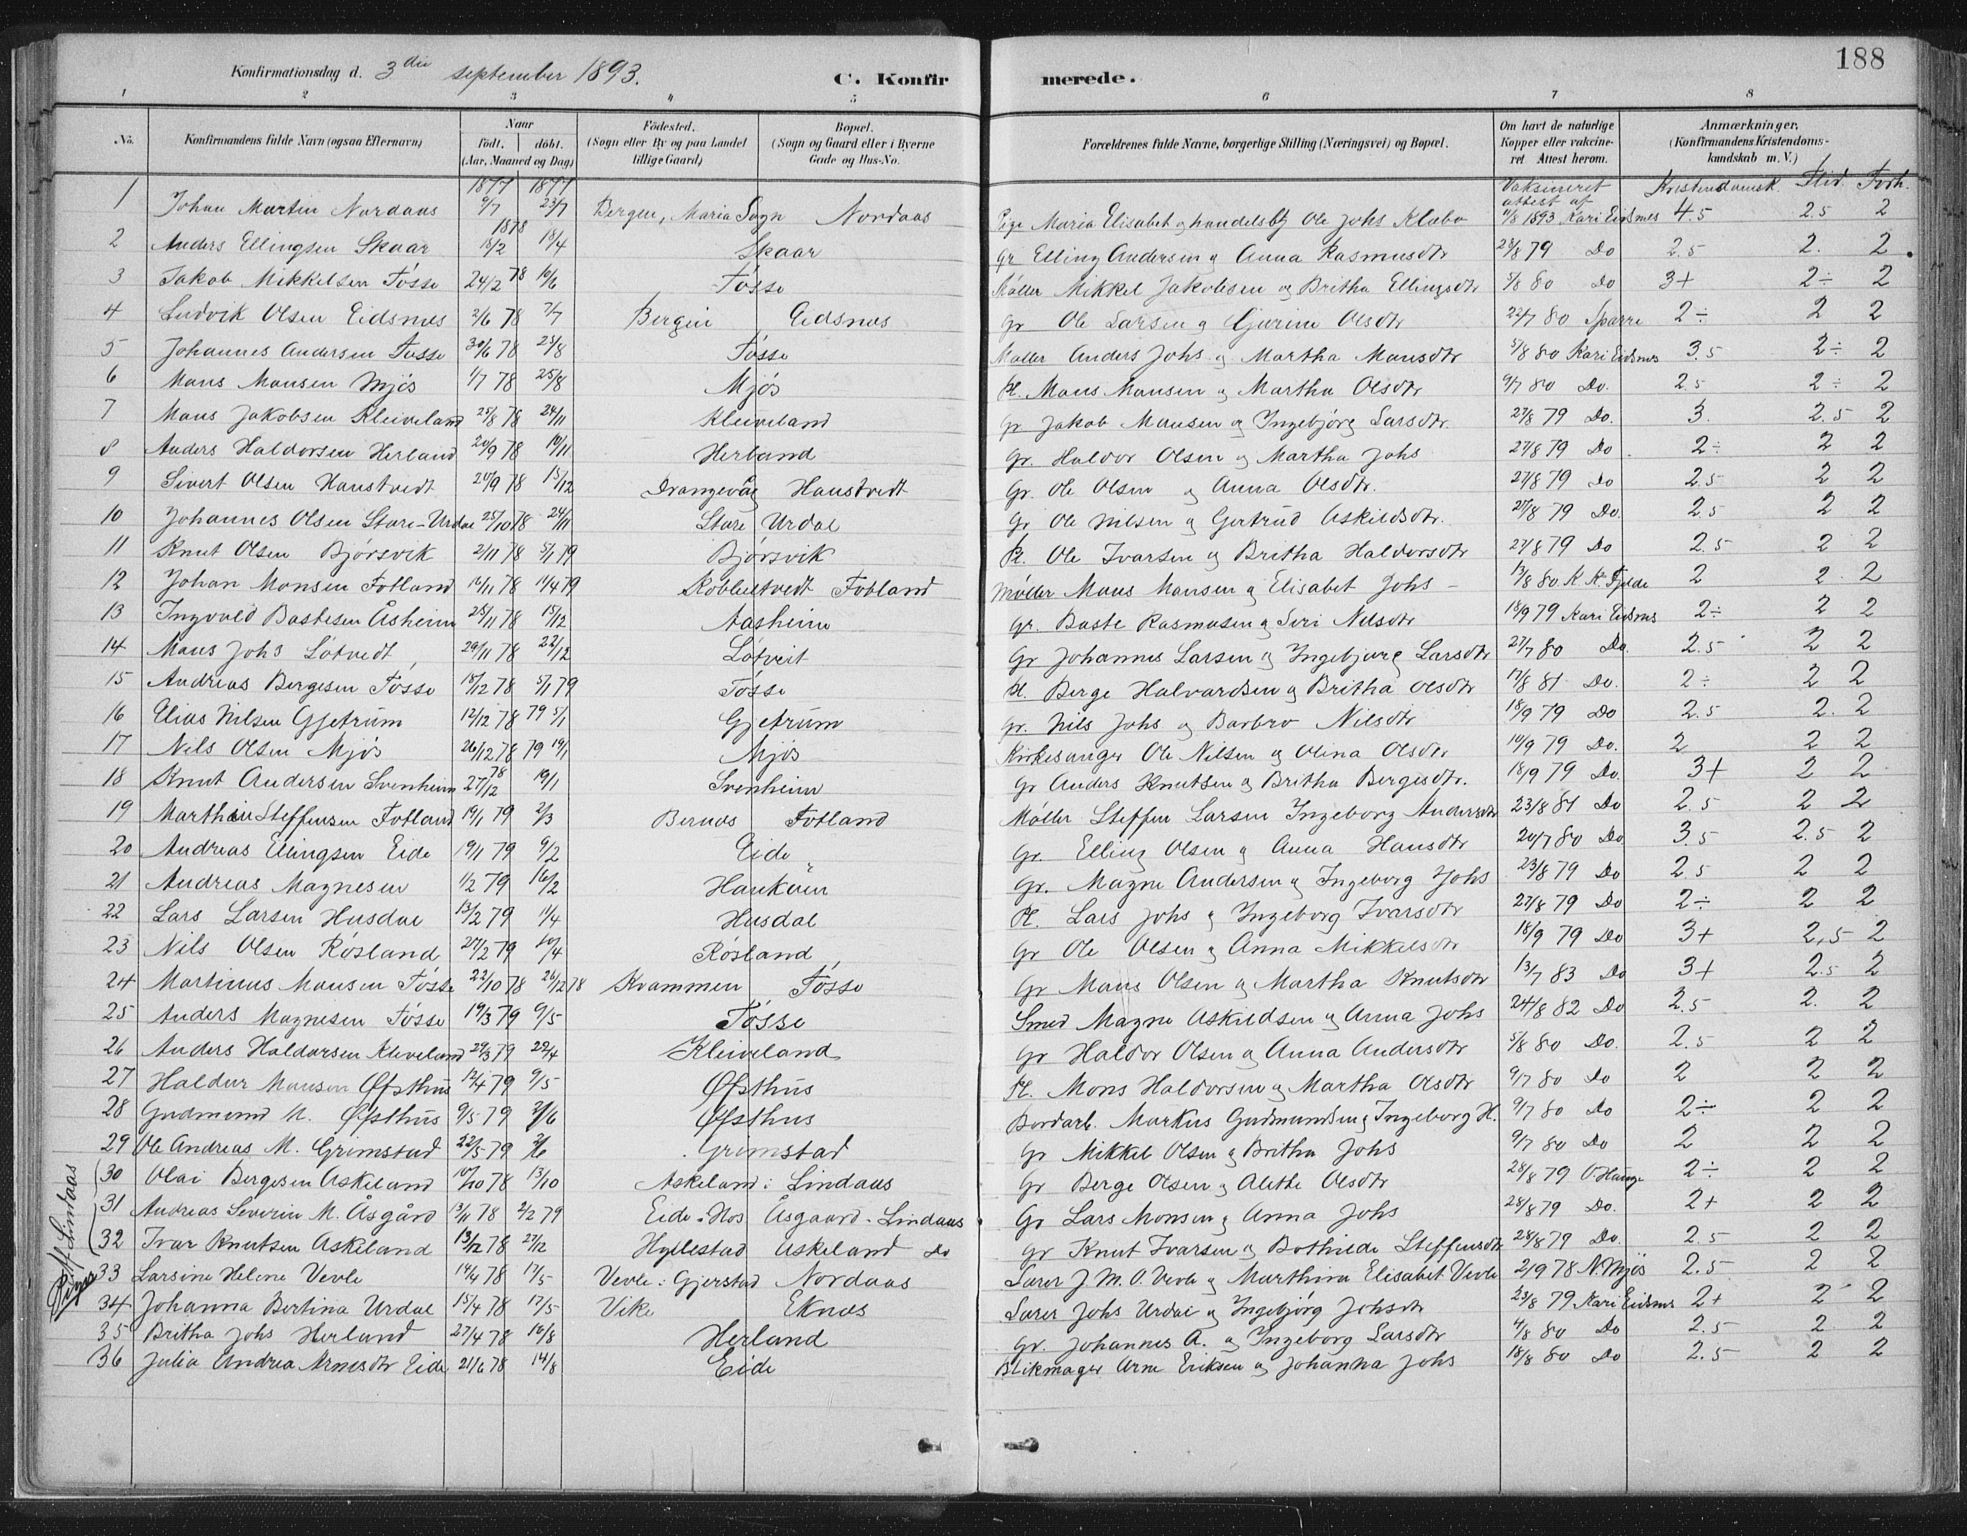 188
Konfirmationsdag d. 3die september 1893. C. Konfir merede.
1 2 3 4 5 6 7 8
No. Konfirmandens fulde Navn (ogsaa Efternavn) Naar født. døbt. (Aar, Maaned og Dag) Fødested. (Sogn eller By og paa Landet tillige Gaard) Bopæl. (Sogn og Gaard eller i Byerne Gade og Hus-No. Forældrenes fulde Navne, borgerlige Stilling (Næringsvei) og Bopæl. Om havt de naturlige Kopper eller vakcineret Attest herom. Anmærkninger. (Konfirmandens Kristendomskundskab m. V.)
1877 1877 Vaksineret attest af Kristendomsk. Flid. Forh.
1 Johan Martin Nordaas 9/7 23/7 Bergen, Maria Sogn Nordaas Pige Maria Elisabet og handelsbtj Ole Johs Klabo 11/8 1893 Kari Eidsnes 4.5 2.5 2
1878
2 Anders Ellingsen Skaar 18/2 18/4 Skaar Gr Elling Andersen og Anna Rasmusdtr 23/8 79 Do 2.5 2. 2.
3 Jakob Mikkelsen Tøsse 24/2 78 10/6 Tøsse Møller Mikkel Jakobsen og Britha Ellingsdtr 5/8 80 Do 3+ 2÷ 2
4 Ludvik Olsen Eidsnes 2/6 78 7/7 Bergen Eidsnes Gr Ole Larsen og Gurine Olsdtr 22/7 80 Sparre 2÷ 2 2
5 Johannes Andersen Tøsse 30/6 78 24/8 Tøsse Møller Anders Johs og Martha Monsdtr 5/8 80 Kari Eidsnes 3.5 2÷ 2
6 Mons Monsen Mjøs 1/7 78 25/8 Mjøs Pl. Mons Monsen og Martha Olsdtr 9/7 80 Do. 2.5 2÷ 2
7 Mons Jakobsen Kleiveland 25/8 78 24/11 Kleiveland Gr Jakob Monsen og Ingebjørg Larsdtr. 27/8 79 Do. 3. 2.5 2
8 Anders Haldorsen Herland 20/9 78 10/11 Herland Gr. Haldor Olsen og Martha Johs 27/8 79 Do. 2÷ 2 2
9 Sivert Olsen Hanstvedt 20/9 78 15/12 Drangevåg Hanstvedt Gr. Ole Olsen og Anna Olsdtr. 27/8 79 Do 2.5 2 2
10 Johannes Olsen Stare-Urdal 25/10 78 24/11 Stare Urdal Gr Ole Nilsen og Gertrud Askildsdtr. 27/8 79 Do. 2.5 2 2
11 Knut Olsen Bjørsvik 2/11 78 5/1 79 Bjørsvik Pl. Ole Ivarsen og Britha Haldorsdtr 27/8 79 Do 2.5 2 2
12 Johan Monsen Fotland 16/11 78 14/4 79 Fotland Møller Mons Monsen og Elisabet Johs 13/8 80 K. K. Fjelde 2 2 2
13 Ingvold Bastesen Åsheim 25/11 78 15/12 Aasheim Gr. Baste Rasmusen og Siri Nilsdtr 18/9 79 Kari Eidsnes 2÷ 2 2
14 Mons Johs Løtvedt 29/11 78 22/12 Løtveit Gr Johannes Larsen og Ingebjørg Larsdtr 27/7 80 Do. 2.5 2 2
15 Andreas Bergesen Tøsse 18/12 78 5/1 79 Tøsse Pl. Berge Halvardsen og Britha Olsdtr 17/8 81 Do. 2÷ 2 2
16 Elias Nilsen Gjetrum 12/12 78 79 5/1 Gjetrum Gr. Nils Johs og Barbro Nilsdtr 18/9 79 Do 2.5 2. 2
17 Nils Olsen Mjøs 26/12 78 79 19/1 Mjøs Kirkesanger Ole Nilsen og Olina Olsdtr 10/9 79 Do. 2 2 2
18 Knut Andersen Svenheim 27/12 78 19/1 Svenheim Gr Anders Knutsen og Britha Bergesdtr. 18/9 79 Do. 3+ 2 2
19 Marthin Steffensen Fotland 19/1 79 2/3 Bernes Fotland Møller Steffen Larsen Ingeborg Andersdtr 23/8 81 Do 2.5 2 2
20 Andreas Elingsen Eide 19/1 79 9/2 Eide Gr. Elling Olsen og Anna Hansdtr 20/7 80 Do 3.5 2.5 2
21 Andreas Magnesen 1/2 79 16/2 Gr. Magne Andersen og Ingeborg Johs 23/8 79 Do 2.5 2 2
22 Lars Larsen Husdal 13/2 79 1/4 Husdal Pl. Lars Johs og Ingeborg Ivarsdtr 27/8 79 Do 2÷ 2 2
23 Nils Olsen Røsland 27/2 79 10/4 Røsland Gr Ole Olsen og Anna Mikkelsdtr 18/9 79 Do 3+ 2.5 2
24 Martinus Monsen Tøsse 22/10 78 26/12 78 Kvammen Tøsse Gr Mons Olsen og Martha Knutsdtr 13/7 83 Do 3+ 2.5 2
25 Anders Magnesen Tøsse 19/3 79 9/5 Tøsse Smed Magne Askildsen og Anna Johs 24/8 82 Do 2.5 2. 2
26 Anders Haldorsen Kleveland 29/3 79 22/4 Kleiveland Gr Haldor Olsen og Anna Andersdtr 5/8 80 Do. 2.5 2 2
27 Haldur Monsen Øfsthus 12/4 79 9/5 Øfsthus Pl. Mons Haldorsen og Martha Olsdtr 9/7 80 Do 2 2 2
28 Gudmund M. Øfsthus 9/5 79 2/6 Øfsthus Bordarb. Markus Gudmundsen og Ingeborg H. 9/7 80 Do 2÷ 2 2
29 Ole Andreas M. Grimstad 22/5 79 2/6 Grimstad Gr Mikkel Olsen og Britha Johs 9/7 80 Do 2 2 2
30 Olai Bergesen Askeland 10/10 78 13/10 Askeland i Lindaas Gr Berge Olsen og Alethe Olsdtr 28/8 79 O. Hauge 2÷ 2 2
31 Andreas Severin M. Åsgård 13/11 78 2/2 79 Eide - Hos Åsgaard - Lindaas Gr Lars Monsen og Anna Johs 28/8 79 Do. 2+ 2 2
32 Ivar Knutsen Askeland 13/12 78 27/12 Hyllestad Askeland Do Gr Knut Ivarsen og Bothilde Steffensdtr 28/8 79 Do. 2.5 2 2
Aff Lindaas
Piger
33 Larsine Helene Vevle 14/4 78 17/5 Vevle i Gjerstad Nordaas Lærer J. M. O. Vevle og Marthina Elisabet Vevle 2/9 78 N. Mjøs 2.5 2 2
34 Johanna Bertina Urdal 15/4 78 17/5 Vike Eknes Lærer Johs Urdal og Ingebjørg Johsdtr 23/8 79 Kari Eidsnes 2+ 2 2
35 Britha Johs Herland 27/4 78 16/8 Herland Gr. Johannes A. og Ingeborg Larsdtr 4/8 80 Do 2.5 2. 2
36 Julia Andrea Arnesdtr Eide 21/6 78 14/8 Eide Blikmager Arne Eriksen og Johanna Johs 18/8 80 Do 2.5 2 2